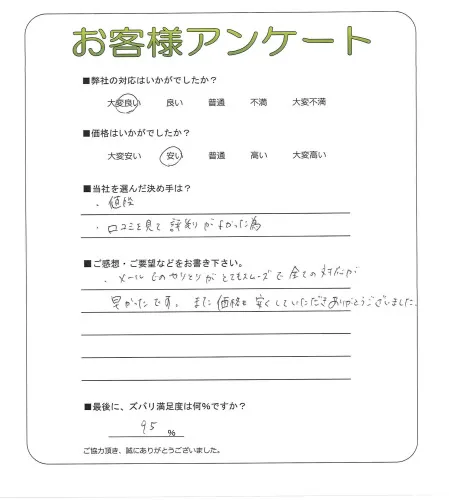 お客様アンケート
■弊社の対応はいかがでしたか?
大変良い 良い 普通 不満 大変不満
■価格はいかがでしたか?
大変安い 安い 普通 高い 大変高い
■当社を選んだ決め手は?
・値段
・口コミを見て評判がよかった為
■ご感想・ご要望などをお書き下さい。
・メールでのやりとりがとてもスムーズで全ての対応が
早かったです。また価格も安くしていただきありがとうございました。
■最後に、ズバリ満足度は何%ですか?
95 %
ご協力頂き、誠にありがとうございました。